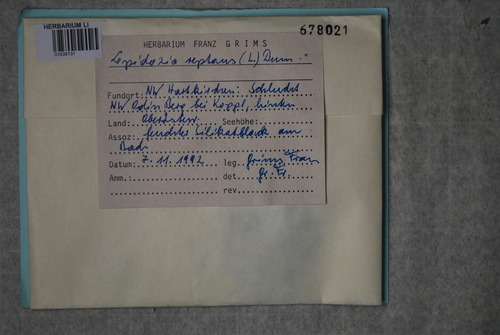 HERBARIUM LI
678021
HERBARIUM FRANZ GRIMS
Lepidozia reptans (L.) Dum.
Fundort: NW Hartkirchen: Schlucht
NW bei Keppl,
Land: Seehöhe:
Assoz: feuchter Silikatblock am
Bach
Datum: 7. 11. 1992 leg. Grims, Franz
Anm.: det Gr. Fr.
rev